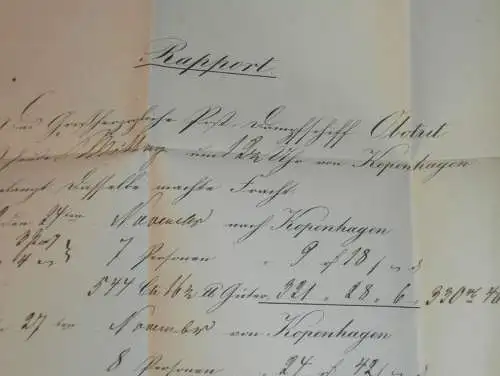 Rapport.
Großherzogliche Post-Dampfschiff Obotrit
Mittag um 12½ Uhr von Kopenhagen
langt dasselbe machte Fracht
den 24ten November nach Kopenhagen
7 Personen " 9 " 18
544 Ctr 16½ ℔ Güter 321 " 28 " 6
27ten November von Kopenhagen
8 Personen " 24 " 42